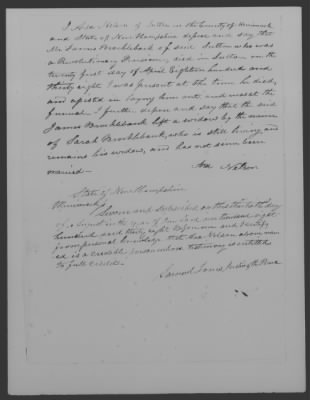 I Asa Nelson of Sutton in the County of Merrimack
and State of New Hampshire depose and say that
Mr James Brocklebank of said Sutton who was
a Revolutionary Pensioner, died in Sutton on the
twenty first day of April Eighteen hundred and
thirty eight I was present at the time he died,
and assisted in laying him out and was at the
funeral I further depose and say that the said
James Brocklebank left a widow by the name
of Sarah Brocklebank, who is still living, and
remains his widow, and has not since been
married.
Asa Nelson
State of New Hampshire
Merrimack ss
Sworn and subscribed on this the day
of August in the year of our Lord one thousand eight
hundred and thirty eight Before me and I certify
from personal knowledge that Asa Nelson above nam
ed is a credible person whose testimony is entitled
to full credit.
Samuel Jones Justice of the Peace